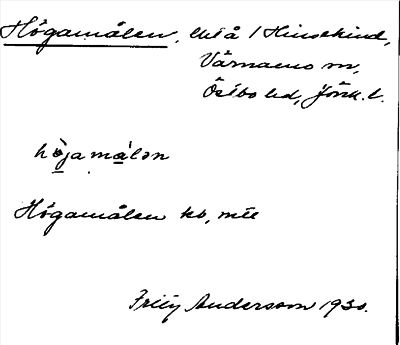 Högamålen, litå / Hinsekind,
Värnamo sn,
Östbo hd, Jönk. l.
höjamålən
Högamålen kb,
Andersson 1930.